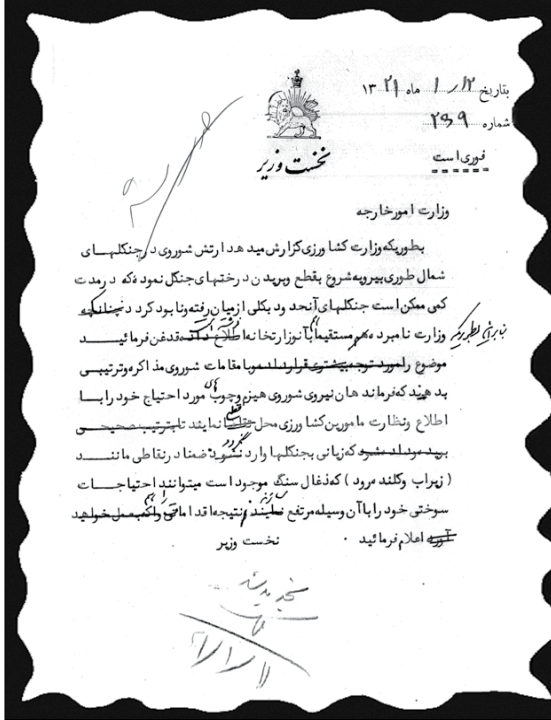 بتاریخ ۱۲ / ۱ ماه ۱۳۲۱
شماره ۲۵۹
نخست وزیر
فوری است
وزارت امورخارجه
بطوریکه وزارت کشاورزی گزارش میدهد ارتش شوروی در جنگلهای
شمال طوری بیرویه شروع بقطع وبریدن درختهای جنگل نموده که درمدت
کمی ممکن است جنگلهای آنحدود بکلی ازمیان رفته ونابود گردد چنانچه
وزارت نامبرده هم مستقیماً بآنوزارتخانه اطلاع داده قدغن فرمائید
موضوع را مورد توجه بیشتری قرارداده وبا مقامات شوروی مذاکره وترتیبی
بدهند که فرماندهان نیروی شوروی هیزم وچوب های مورد احتیاج خود را با
اطلاع ونظارت مامورین کشاورزی محل نمایند تا بترتیب صحیحی
بریده شود که زیانی بجنگلها وارد نشود ضمناً در نقاطی مانند
( زیراب وگلندرود ) که ذغال سنگ موجود است میتوانند احتیاجات
سوختی خود را با آن وسیله مرتفع نمایند نتیجه اقدامات خواهید
آورد اعلام فرمائید .
نخست وزیر